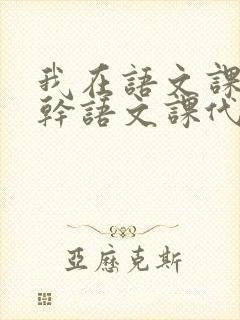 我在語文課
幹語文課代
亞歷克斯